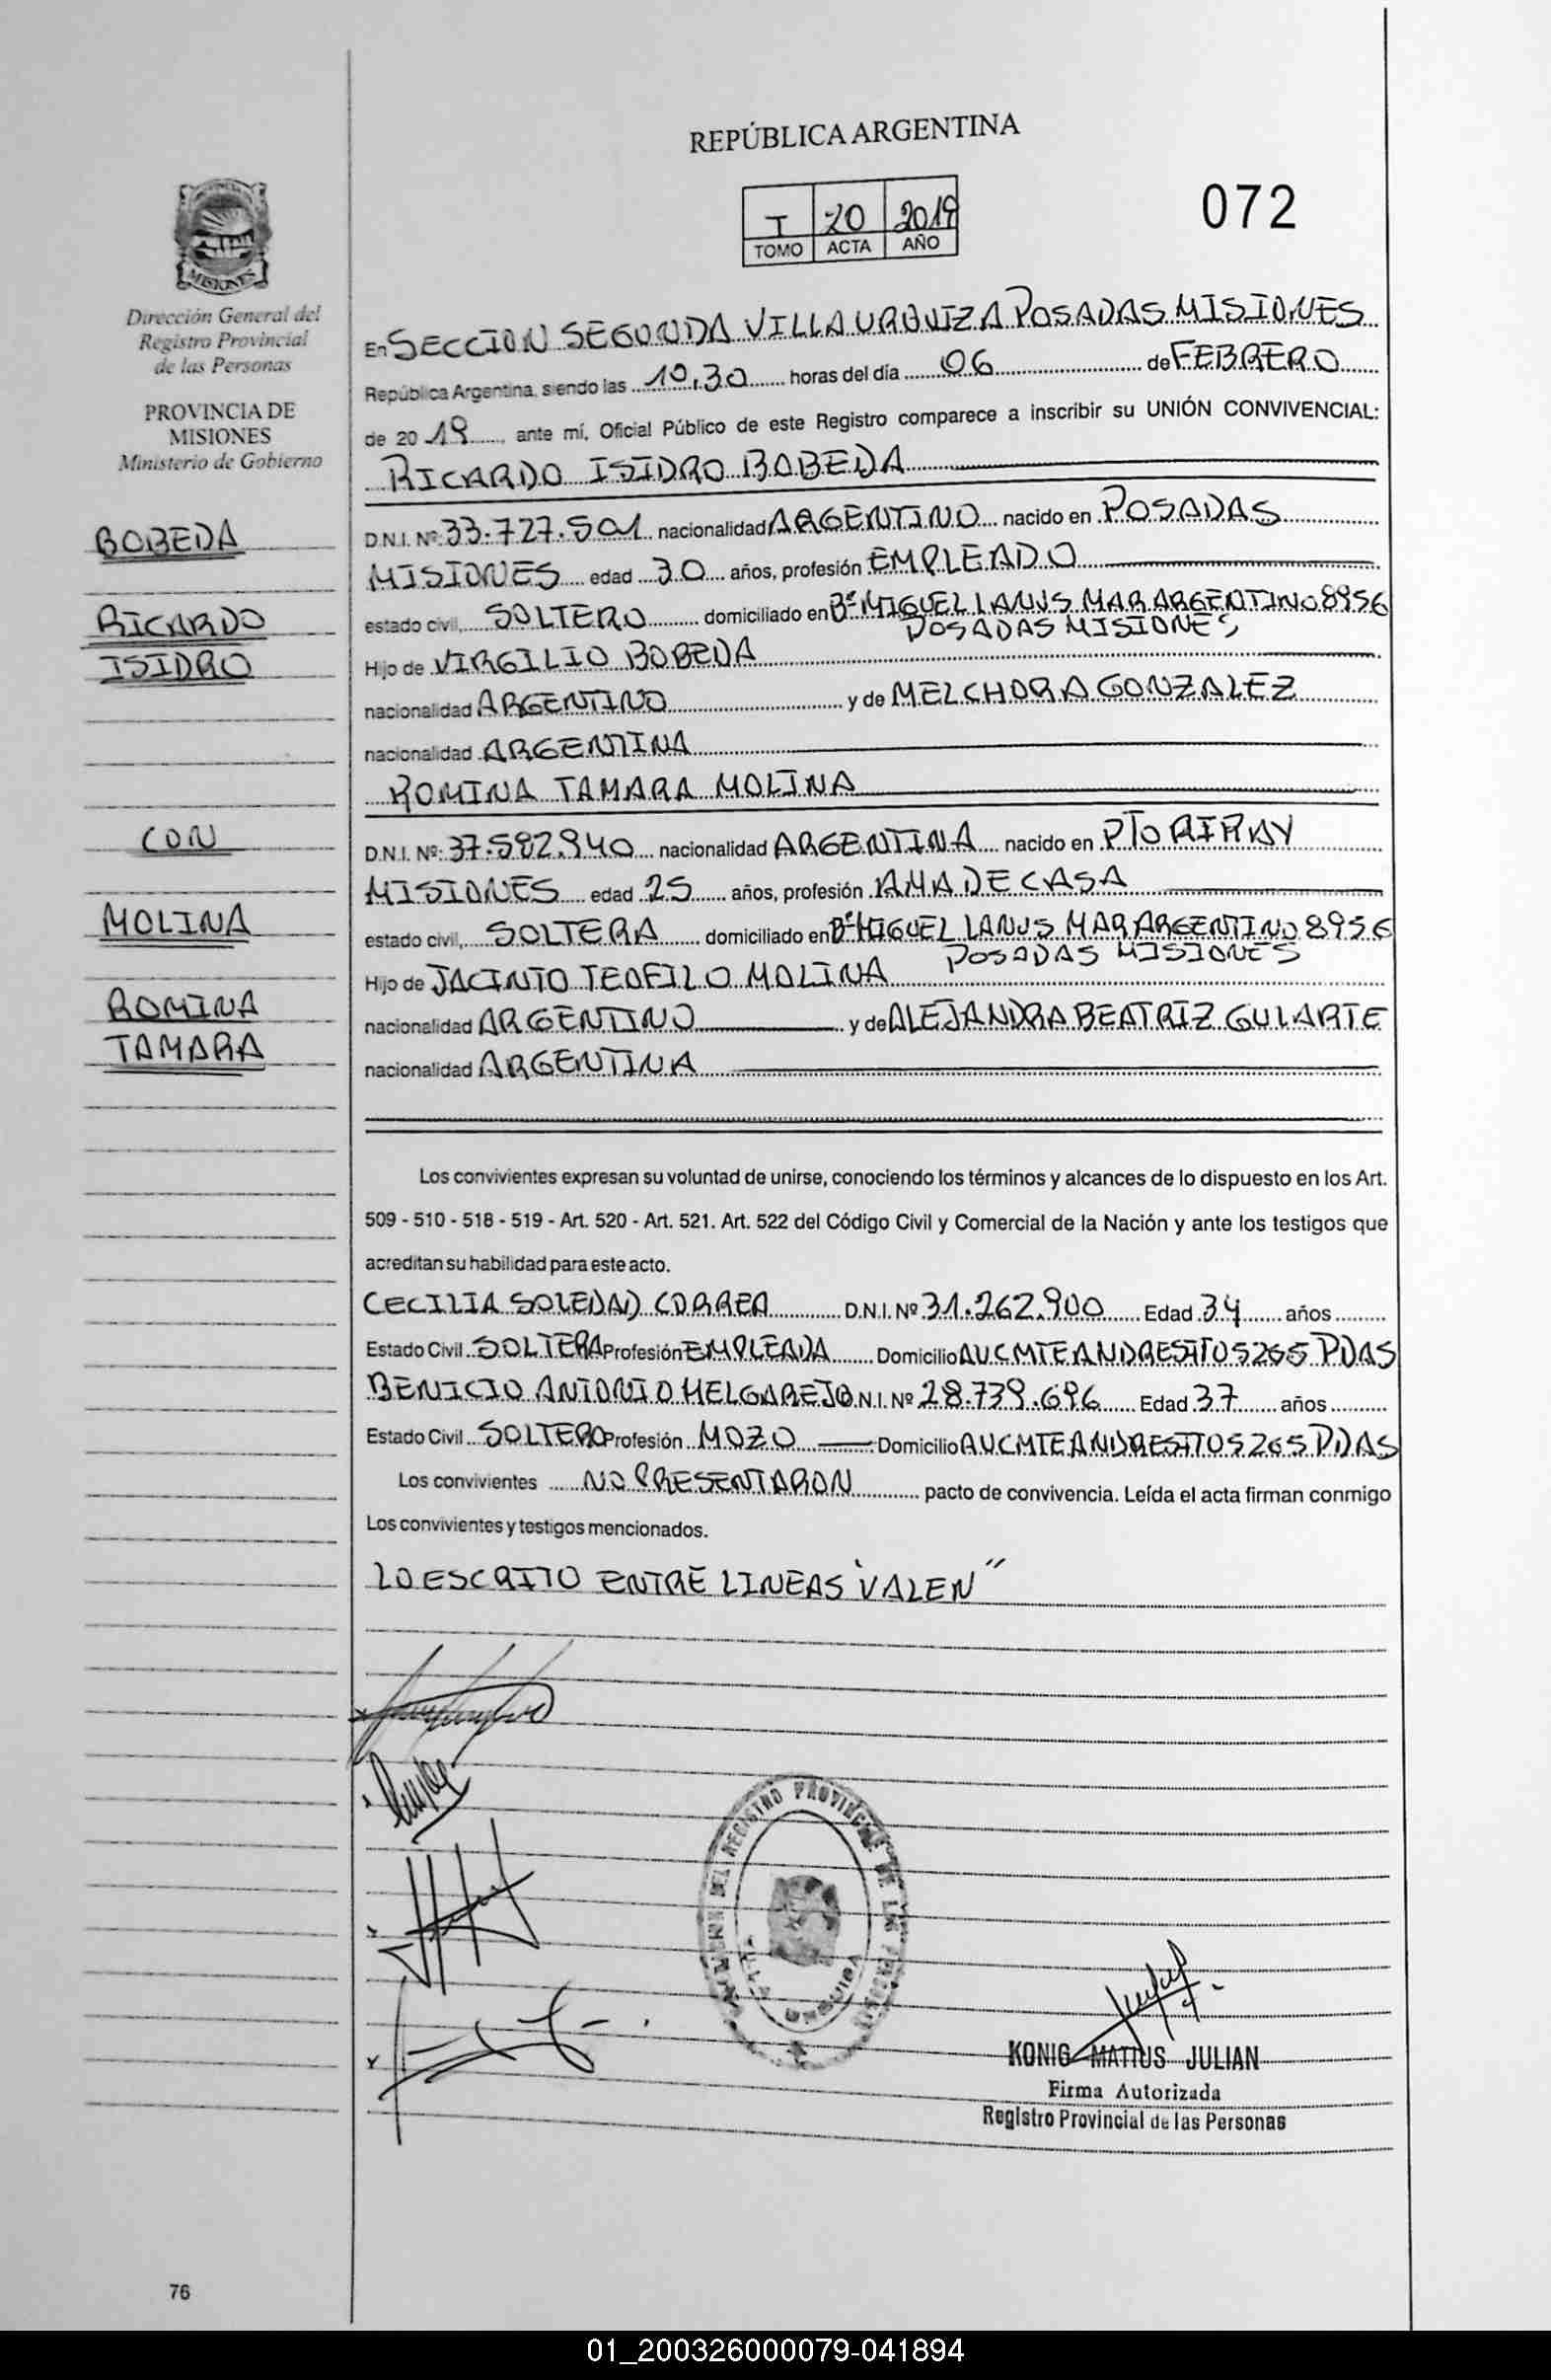 REPÚBLICA ARGENTINA
I 20 2019
TOMO ACTA AÑO
072
MISIONES
Dirección General del
Registro Provincial
de las Personas
PROVINCIA DE
MISIONES
Ministerio de Gobierno
BOBEDA
RICARDO
ISIDRO
CON
MOLINA
ROMINA
TAMARA
En SECCION SEGUNDA VILLA URQUIZA POSADAS MISIONES
República Argentina, siendo las 10,30 horas del día 06 de FEBRERO
de 2019, ante mí, Oficial Público de este Registro comparece a inscribir su UNIÓN CONVIVENCIAL:
RICARDO ISIDRO BOBEDA
D.N.I. Nº: 33.727.501 nacionalidad ARGENTINO nacido en POSADAS
MISIONES edad 30 años, profesión EMPLEADO
estado civil, SOLTERO domiciliado en Bº MIGUEL LANUS MAR ARGENTINO 8956
POSADAS MISIONES
Hijo de VIRGILIO BOBEDA
nacionalidad ARGENTINO y de MELCHORA GONZALEZ
nacionalidad ARGENTINA
ROMINA TAMARA MOLINA
D.N.I. Nº: 37.582.940 nacionalidad ARGENTINA nacido en PTO
MISIONES edad 25 años, profesión AMA DE CASA
estado civil, SOLTERA domiciliado en Bº MIGUEL LANUS MAR ARGENTINO 8956
POSADAS MISIONES
Hijo de JACINTO TEOFILO MOLINA
nacionalidad ARGENTINO y de ALEJANDRA BEATRIZ GULARTE
nacionalidad ARGENTINA
Los convivientes expresan su voluntad de unirse, conociendo los términos y alcances de lo dispuesto en los Art.
509 - 510 - 518 - 519 - Art. 520 - Art. 521. Art. 522 del Código Civil y Comercial de la Nación y ante los testigos que
acreditan su habilidad para este acto.
CECILIA SOLEDAD CORREA D.N.I. Nº 31.262.900 Edad 34 años
Estado Civil SOLTERA Profesión EMPLEADA Domicilio AV CMTE ANDRESITO 5265 PDAS
BENICIO ANTONIO MELGAREJO D.N.I. Nº 28.739.696 Edad 37 años
Estado Civil SOLTERO Profesión MOZO Domicilio AV CMTE ANDRESITO 5265 PDAS
Los convivientes NO PRESENTARON pacto de convivencia. Leída el acta firman conmigo
Los convivientes y testigos mencionados.
LO ESCRITO ENTRE LINEAS "VALEN"
DEL REGISTRO PROVINCIAL DE LAS
VILLA URQUIZA
KONIG MATIUS JULIAN
Firma Autorizada
Registro Provincial de las Personas
76
01_200326000079-041894